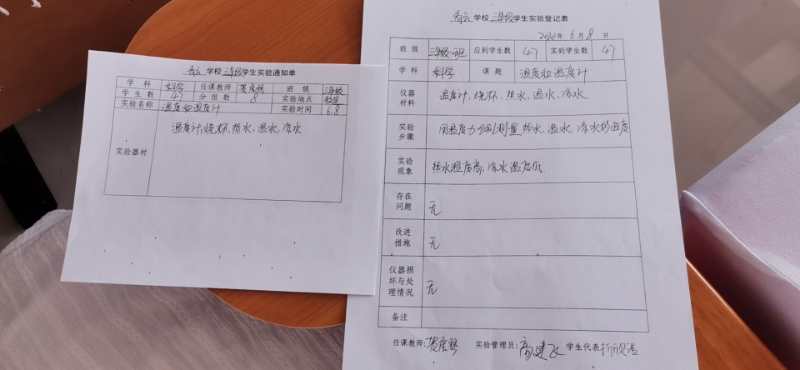 学校三年级学生实验通知单
学科 科学 任课教师 班级 三年级
学生数 47 分组数 8 实验地点
实验名称 温度和温度计 实验时间 6.8
实验器材 温度计,烧杯,热水,温水,冷水
学校三年级学生实验登记表
年6月8日
班级 三年级一班 应到学生数 47 实到学生数 47
学科 科学 课题 温度和温度计
仪器材料 温度计,烧杯,热水,温水,冷水
实验步骤 用温度计分别测量热水,温水,冷水的温度
实验现象 热水温度高,冷水温度低
存在问题 无
改进措施 无
仪器损坏与处理情况 无
备注
任课教师: 实验管理员: 学生代表: